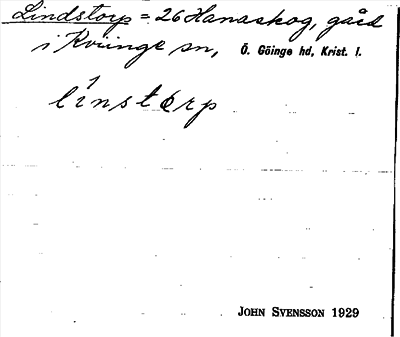 Lindstorp = 26 Hanaskog, gård
i Kviinge sn, Ö. Göinge hd, Krist. l.
li̍nstørp
JOHN SVENSSON 1929